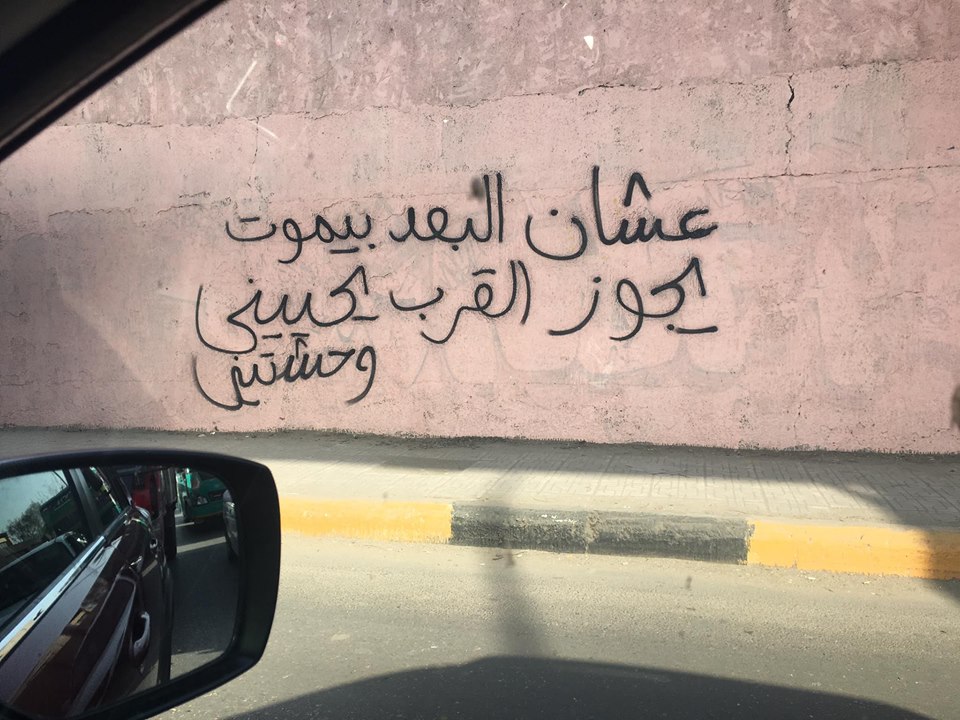 عشان البعد بيموت
يجوز القرب يحييني
وحشتيني